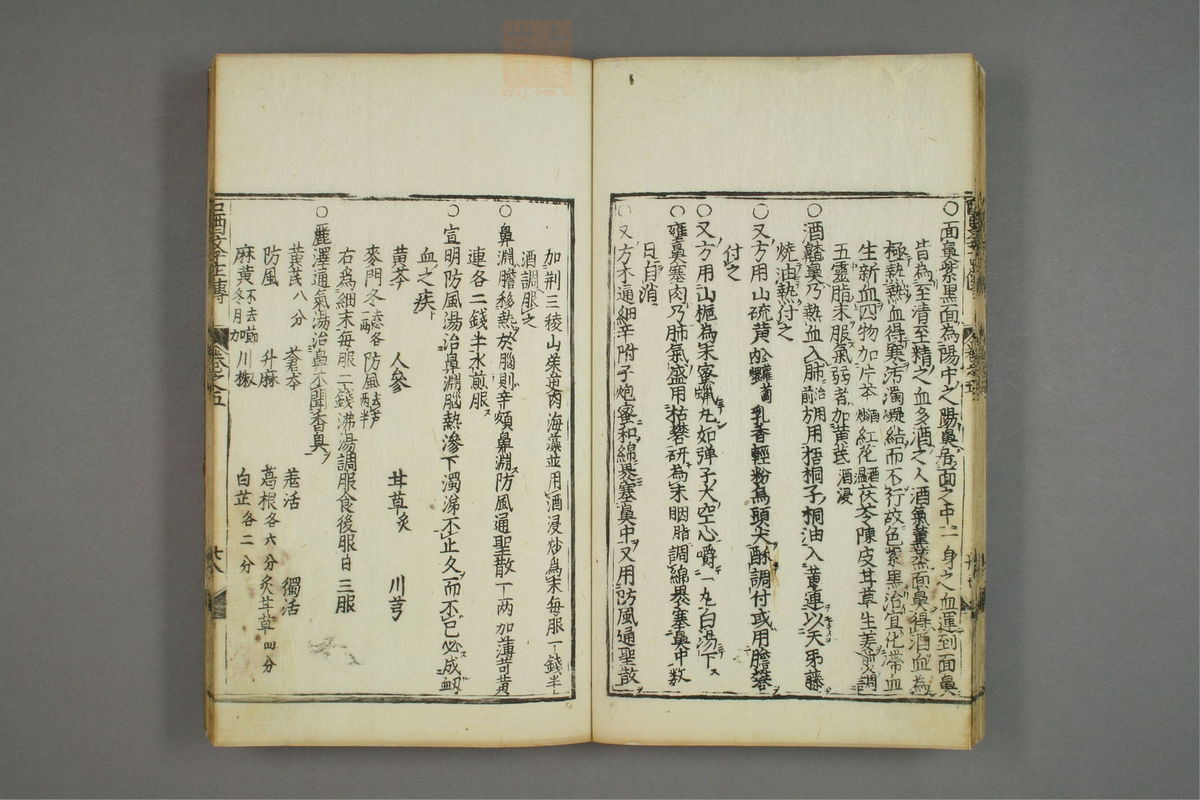 ○面鼻紫黒面為陽中之陽鼻居面之中一身之血運到面鼻
皆為至清至精之血多酒之人酒氣薰蒸面鼻得酒血為
極熱熱血得寒汚濁凝結而不行故色紫黒治宜化滯血
生新血四物加片芩酒炒紅花酒温茯苓陳皮甘草生姜煎調
五靈脂末服氣弱者加黄芪酒浸
○酒齄鼻乃熱血入肺治用前方用梧桐子桐油入黄連以天弔藤
焼油熱付之
○又方用山硫黄 乳香輕粉烏頭尖酥調付或用膽礬
付之
○又方用山梔為末蜜蝋丸如弾子大空心嚼一丸白湯下
○雍鼻塞肉乃肺氣盛用枯礬研為末胭脂調綿褁塞鼻中数
日自消
○又方木通細辛附子炮蜜和綿褁塞鼻中又用防風通聖散
加荆三稜山茱萸肉海藻並用酒浸炒為末毎服一錢半
酒調服之
○鼻淵膽移熱於腦則辛頞鼻淵防風通聖散一両加薄苛黄
連各二錢半水煎服
○宣明防風湯治鼻淵腦熱滲下濁涕不止久而不已必成衂
血之疾
黄芩 人參 甘草炙 川芎
麥門冬去心各一両 防風去芦両半
右爲細末毎服二錢沸湯調服食後服日三服
○麗澤通氣湯治鼻不聞香臭
黄芪八分 蒼本 羗活 獨活
防風 升麻 葛根各六分 炙甘草四分
麻黄不去節冬月加 川椒 白芷各二分
卷之五
廿八